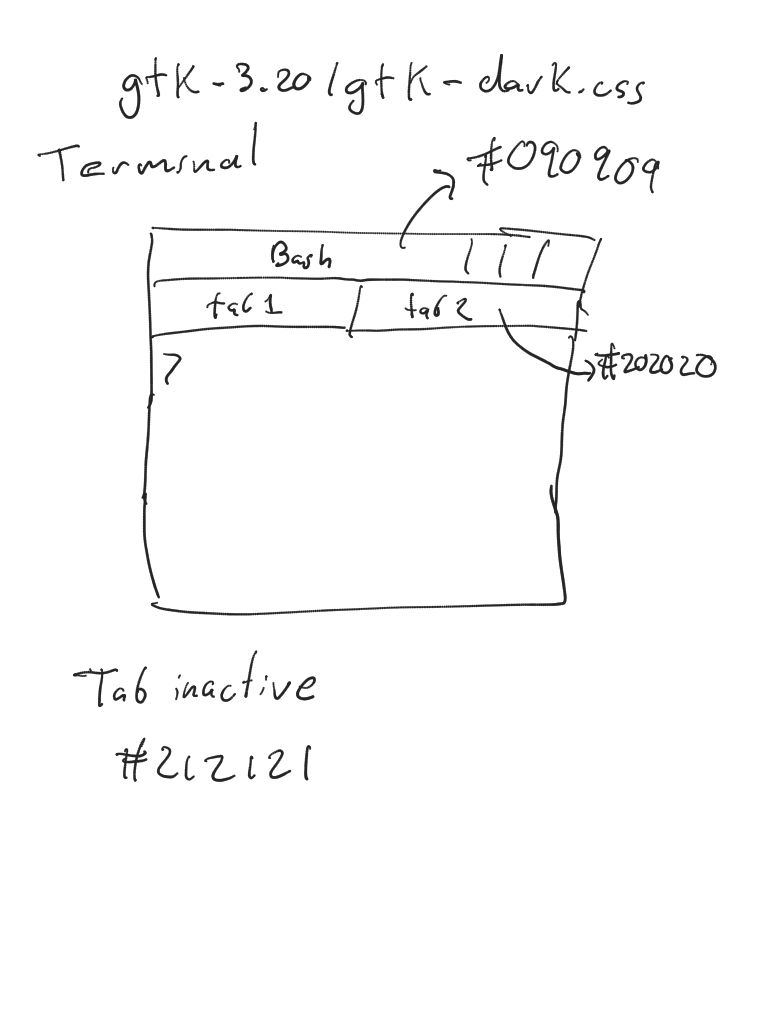 gtk-3.20/gtk-dark.css
Terminal
#090909
Bash
tab 1 tab 2
>
#202020
Tab inactive
#212121